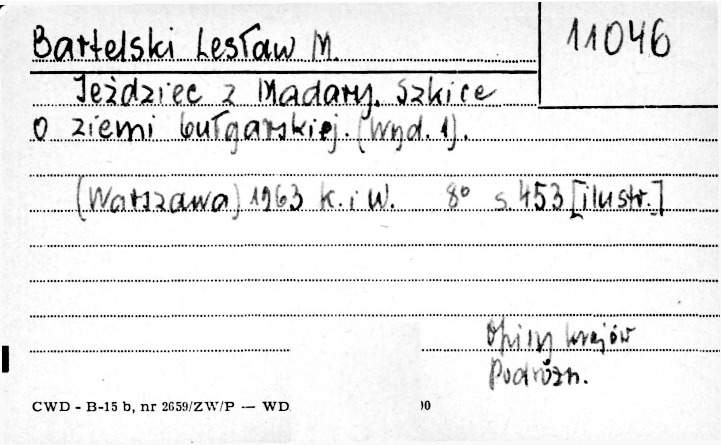 Bartelski Lesław M.
11046
Jeździec z Madary. Szkice
o ziemi bułgarskiej. (Wyd. 1).
(Warszawa) 1963 K. i W. 8° s. 453 [ilustr.]
Opisy krajów
Podróżn.
CWD - B-15 b, nr 2659/ZW/P — WD 00